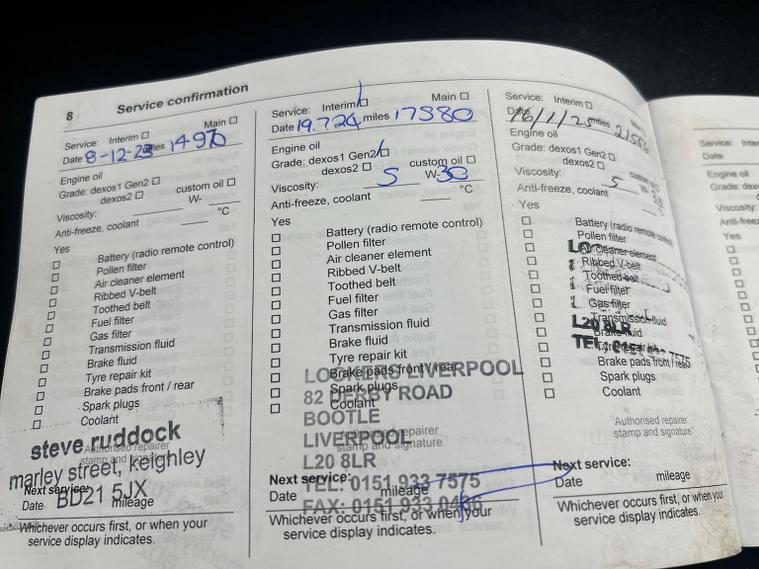 8 Service confirmation
Service: Interim Main
Date 8-12-23 miles 14970
Engine oil
Grade: dexos1 Gen2
dexos2 custom oil
Viscosity: W-
Anti-freeze, coolant °C
Yes
Battery (radio remote control)
Pollen filter
Air cleaner element
Ribbed V-belt
Toothed belt
Fuel filter
Gas filter
Transmission fluid
Brake fluid
Tyre repair kit
Brake pads front / rear
Spark plugs
Coolant
steve ruddock
Authorised repairer
stamp and signature
marley street, keighley
BD21 5JX
Next service:
Date mileage
Whichever occurs first, or when your
service display indicates.
Service: Interim Main
Date 19.7.24 miles 17580
Engine oil
Grade: dexos1 Gen2
dexos2 custom oil
Viscosity: 5 W-30
Anti-freeze, coolant °C
Yes
Battery (radio remote control)
Pollen filter
Air cleaner element
Ribbed V-belt
Toothed belt
Fuel filter
Gas filter
Transmission fluid
Brake fluid
Tyre repair kit
Brake pads front / rear
Spark plugs
Coolant
LIVERPOOL
82 DERBY ROAD
BOOTLE
LIVERPOOL
L20 8LR
TEL: 0151 933 7575
FAX: 0151 933 0486
Authorised repairer
stamp and signature
Next service:
Date mileage
Whichever occurs first, or when your
service display indicates.
Service: Interim
Date 16/1/25 miles
Engine oil
Grade: dexos1 Gen2
dexos2 custom oil
Viscosity: 5 W-
Anti-freeze, coolant °C
Yes
Battery (radio remote control)
Pollen filter
Air cleaner element
Ribbed V-belt
Toothed belt
Fuel filter
Gas filter
Transmission fluid
Brake fluid
Tyre repair kit
Brake pads front / rear
Spark plugs
Coolant
L20 8LR
TEL: 0151 933 7575
Authorised repairer
stamp and signature
Next service:
Date mileage
Whichever occurs first, or when your
service display indicates.
Service:
Date
Engine oil
Grade:
Viscosity:
Yes